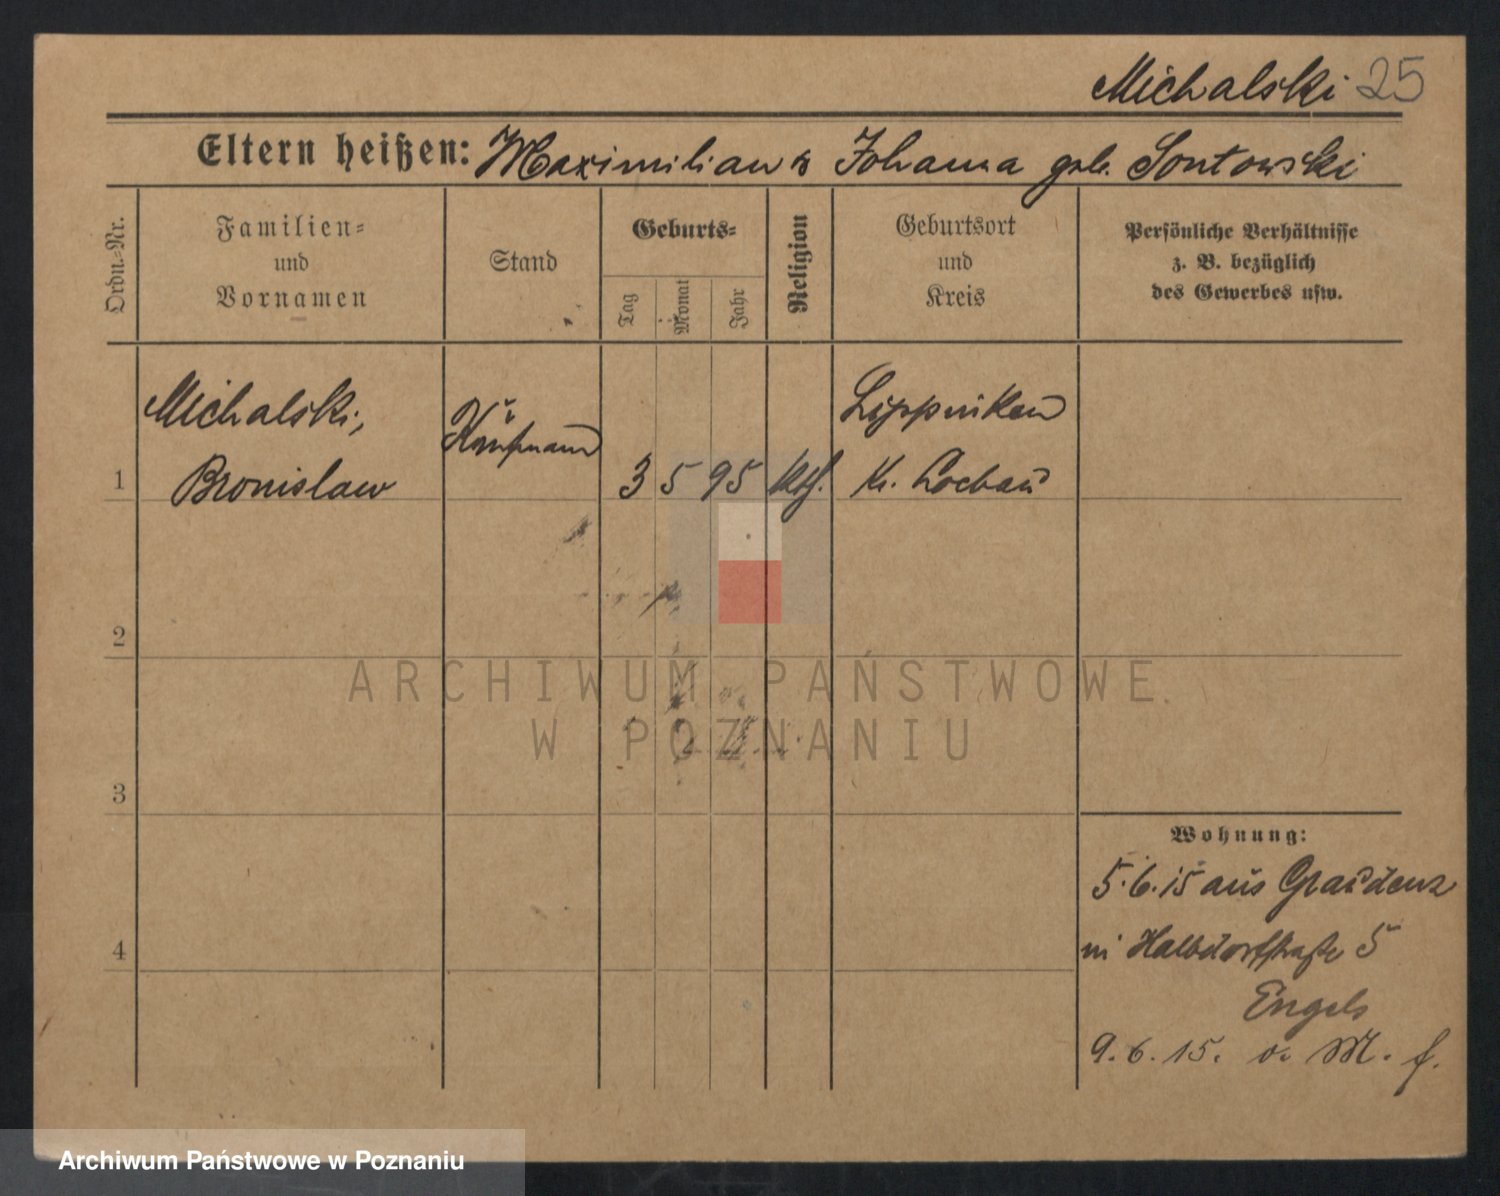 Michalski 25
Eltern heißen: Maximilian & Johanna geb. Sontowski
Ordn.-Nr.
Familien-
und
Vornamen
Stand
Geburts-
Tag
Monat
Jahr
Religion
Geburtsort
und
Kreis
Persönliche Verhältnisse
z. B. bezüglich
des Gewerbes usw.
Michalski,
Kaufmann
Lippinken
1 Bronislaw 3 5 95 kth. Kr. Loebau
2
ARCHIWUM PAŃSTWOWE
W POZNANIU
3
Wohnung:
5.6.15 aus Graudenz
4
in Halbdorfstraße 5
Engels
9.6.15. o. M. f.
Archiwum Państwowe w Poznaniu